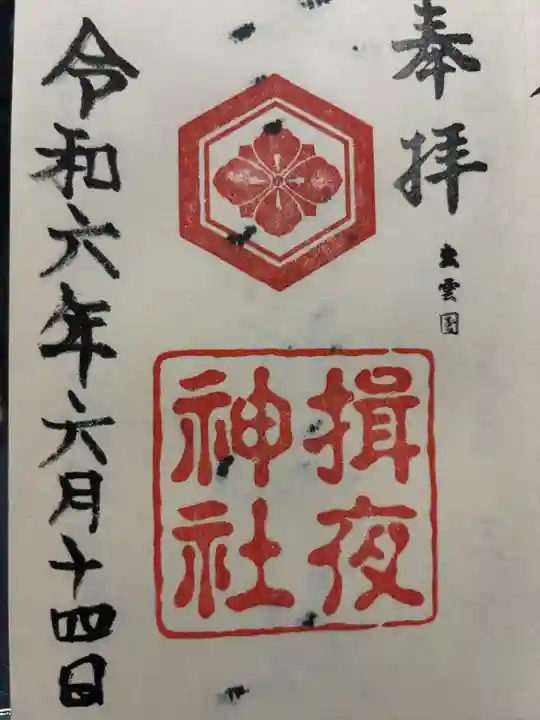 奉拝
出雲国
揖夜
神社
令和六年六月十四日